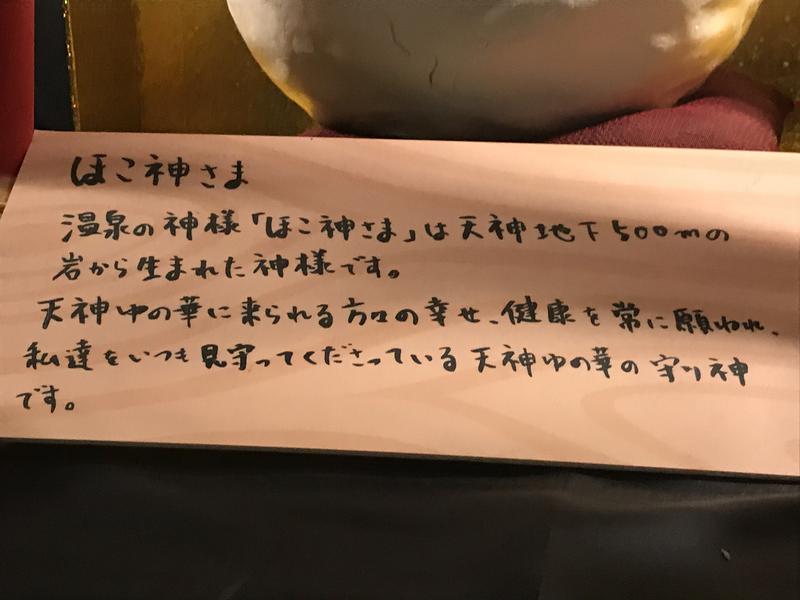 ほこ神さま
温泉の神様「ほこ神さま」は天神地下500mの
岩から生まれた神様です。
天神ゆの華に来られる方々の幸せ、健康を常に願われ、
私達をいつも見守ってくださっている天神ゆの華の守り神
です。